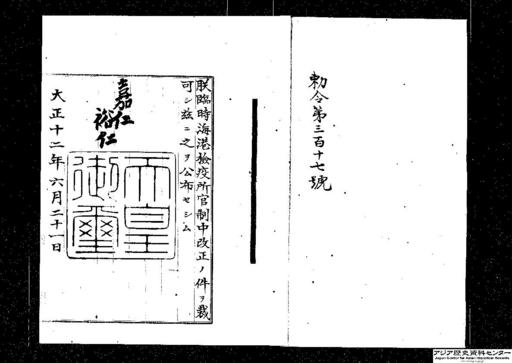 勅令第三百十七號
朕臨時海港檢疫所官制中改正ノ件ヲ裁
可シ茲ニ之ヲ公布セシム
嘉仁
裕仁
天皇
御璽
大正十二年六月二十一日
アジア歴史資料センター
Japan Center for Asian Historical Records